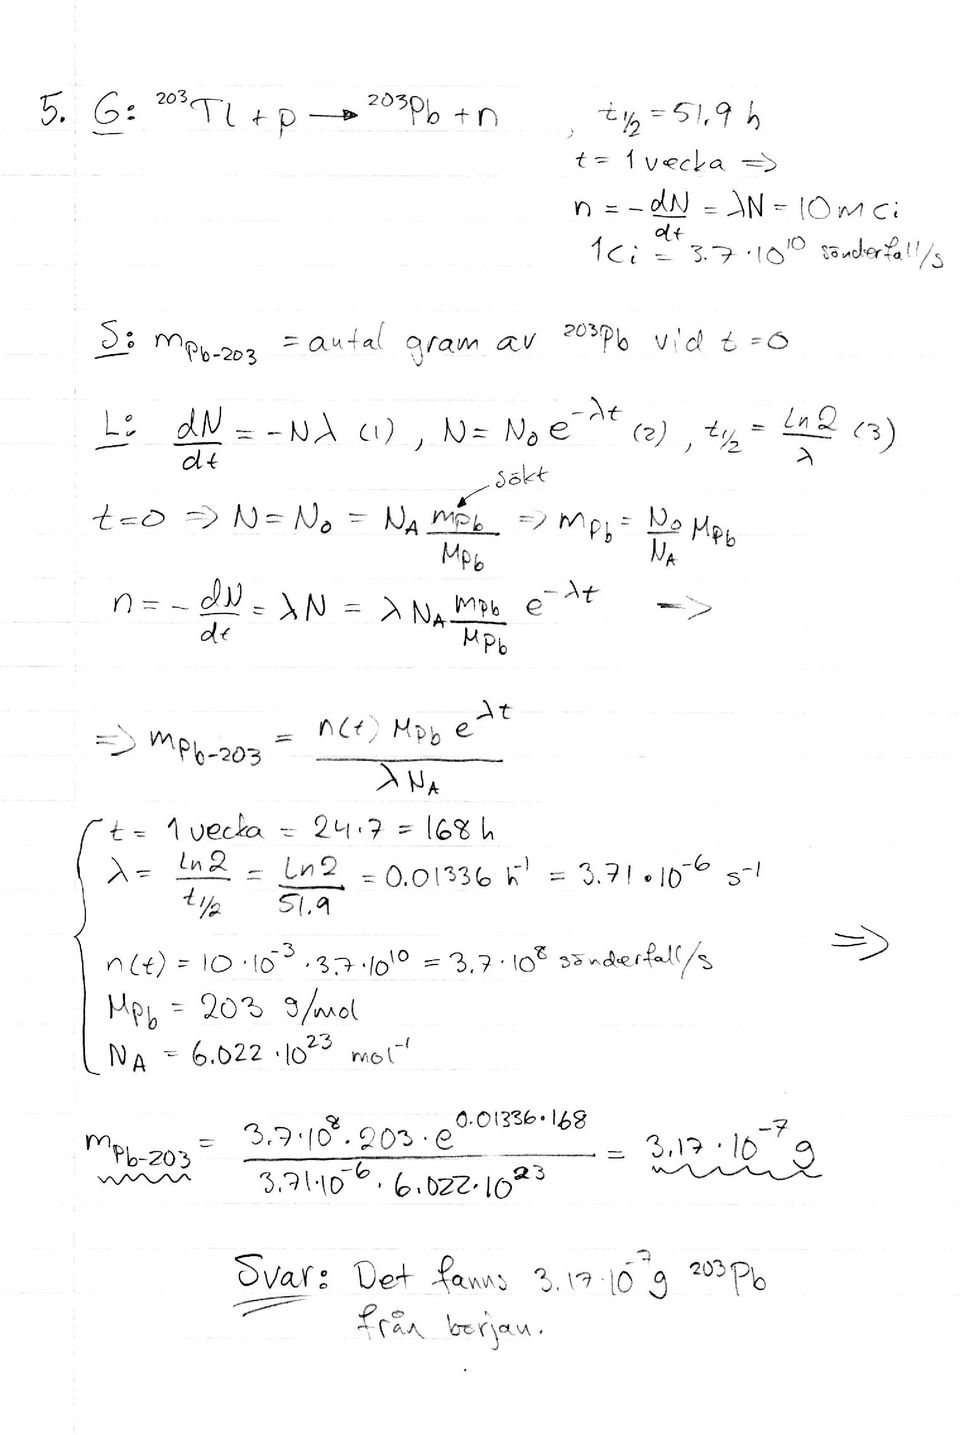 5. G: ²⁰³Tl + p → ²⁰³Pb + n , t½ = 51.9 h
t = 1 vecka =>
n = - dN/dt = λN = 10 mCi
1Ci = 3.7 · 10¹⁰ sönderfall/s
S: m_Pb-203 = antal gram av ²⁰³Pb vid t = 0
L: dN/dt = -Nλ (1) , N = N₀ e^(-λt) (2) , t½ = Ln2/λ (3)
sökt
t=0 => N = N₀ = N_A m_Pb/M_Pb => m_Pb = N₀/N_A M_Pb
n = - dN/dt = λN = λ N_A m_Pb/M_Pb e^(-λt) =>
=> m_Pb-203 = n(t) M_Pb e^(λt) / λ N_A
t = 1 vecka = 24·7 = 168 h
λ = Ln2/t½ = Ln2/51.9 = 0.01336 h⁻¹ = 3.71 · 10⁻⁶ s⁻¹
n(t) = 10 · 10⁻³ · 3.7 · 10¹⁰ = 3.7 · 10⁸ sönderfall/s =>
M_Pb = 203 g/mol
N_A = 6.022 · 10²³ mol⁻¹
m_Pb-203 = 3.7·10⁸ · 203 · e^(0.01336·168) / 3.71·10⁻⁶ · 6.022·10²³ = 3.17 · 10⁻⁷ g
Svar: Det fanns 3.17·10⁻⁷ g ²⁰³Pb
från början.